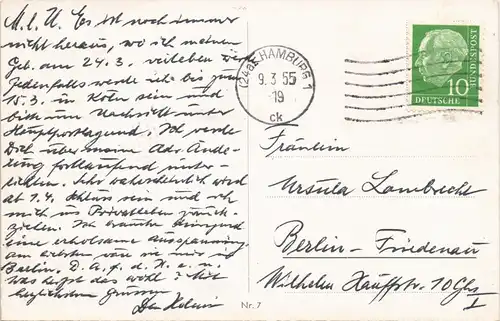 M. l. U. Es ist noch immer
nicht heraus, wo ich meinen
Geb. am 24. 3. verleben werde
Jedenfalls werde ich bis zum
15. 3. in Köln sein und
bitte um Nachricht unter
Hauptpostlagernd. Ich werde
Dich über meine Adr. Ände-
rung fortlaufend unter-
richten. Sehr wahrscheinlich wird
ab 1. 4. Schluss sein und ich
mich ins Privatleben zurück-
ziehen. Ich brauche dringend
eine erholsame Ausspannung.
Am liebsten wäre mir in
Berlin. D. A. f. d. K. a. u.
was heißt das wohl? Mit
herzlichsten Grüssen
Dein
(24a) HAMBURG 1
9. 3. 55
-19
ck
DEUTSCHE BUNDESPOST
10
Fräulein
Ursula Lambrecht
Berlin-Friedenau
Wilhelm Hauffstr. 10 Ghs
I
Nr. 7